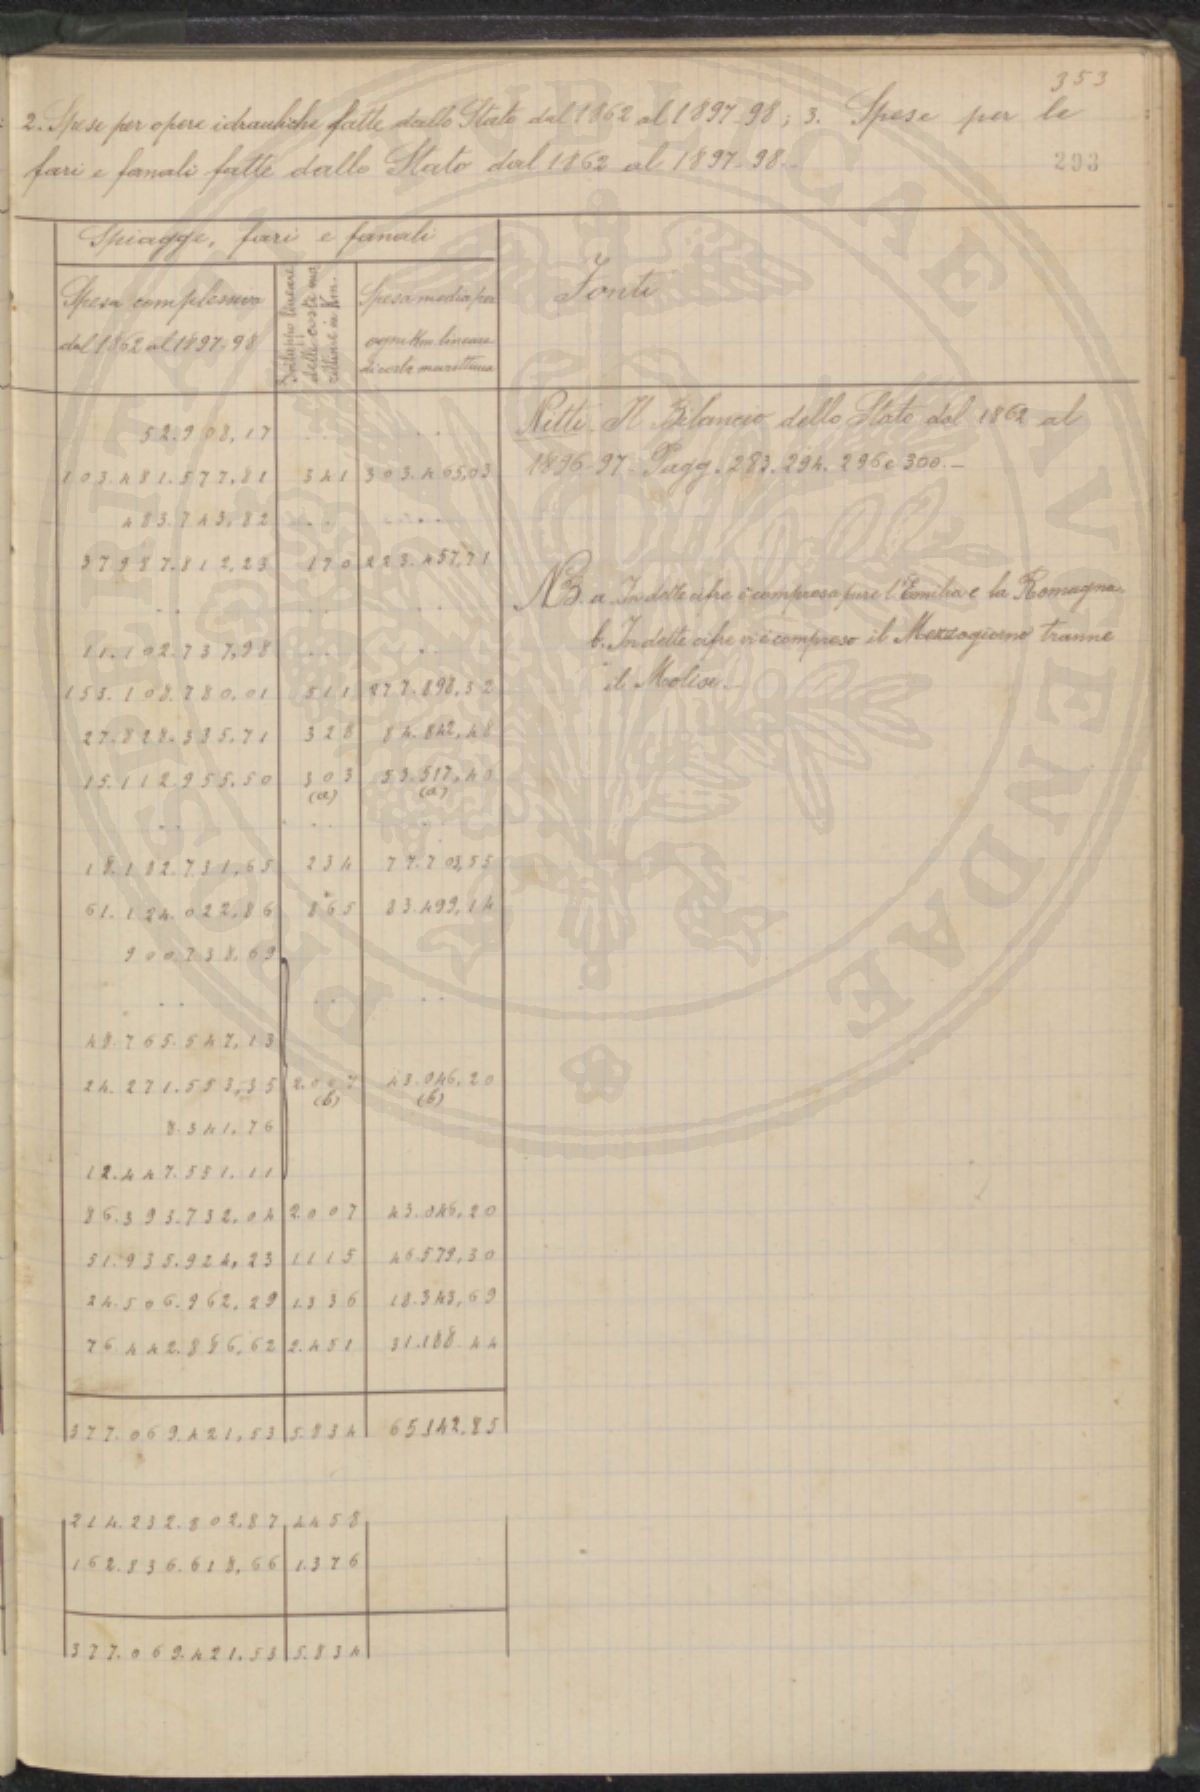 353
2. Spese per opere idrauliche fatte dallo Stato dal 1862 al 1897-98; 3. Spese per le
fari e fanali fatte dallo Stato dal 1862 al 1897-98.-
293
Spiagge, fari e fanali
Spesa complessiva dal 1862 al 1897-98
Sviluppo lineare delle coste in Km.
Spesa media per ogni Km. lineare di costa marittima
Fonti
52.908,17 .. ..
103.481.577,81 341 303.465,03
483.743,82 .. ..
37.987.812,23 170 223.457,71
.. .. ..
11.102.737,98 .. ..
153.108.780,01 511 277.898,32
27.828.335,71 328 84.842,48
15.112.955,50 303 (a) 53.517,40 (a)
.. .. ..
18.182.731,65 234 77.703,55
61.124.022,86 865 83.499,14
900.738,69
.. .. ..
48.765.547,13
24.271.553,35 2.007 (b) 43.046,20 (b)
8.341,76
12.447.551,11
86.393.732,04 2007 43.046,20
51.935.924,23 1115 46.579,30
24.506.962,29 1.336 18.343,69
76.442.886,62 2.451 31.188.44
377.069.421,53 5.834 65.142.85
214.232.802,87 4458
162.836.618,66 1.376
377.069.421,53 5.834
Nitti. Il Bilancio dello Stato dal 1862 al
1896-97 - Pagg. 283. 294. 296 e 300.-
NB. a. In dette cifre è compresa pure l'Emilia e la Romagna.
b. In dette cifre vi è compreso il Mezzogiorno tranne
il Molise.-
PROSPICITE RI PUBLICAE AVGENDAE